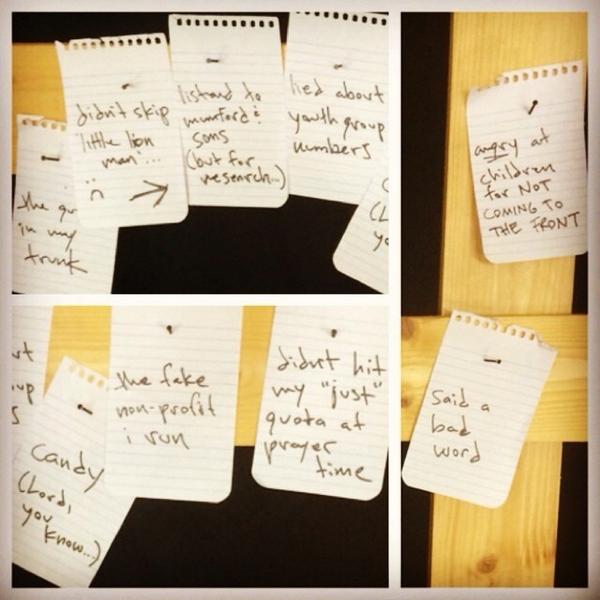 didn't skip
'little lion
man'...
:(
listend to
mumford &
sons
(but for
research...)
lied about
youth group
numbers
the
in my
trunk
angry at
children
for NOT
COMING TO
THE FRONT
the fake
non-profit
i run
didn't hit
my "just"
quota at
prayer
time
candy
(Lord,
you
know...)
said a
bad
word